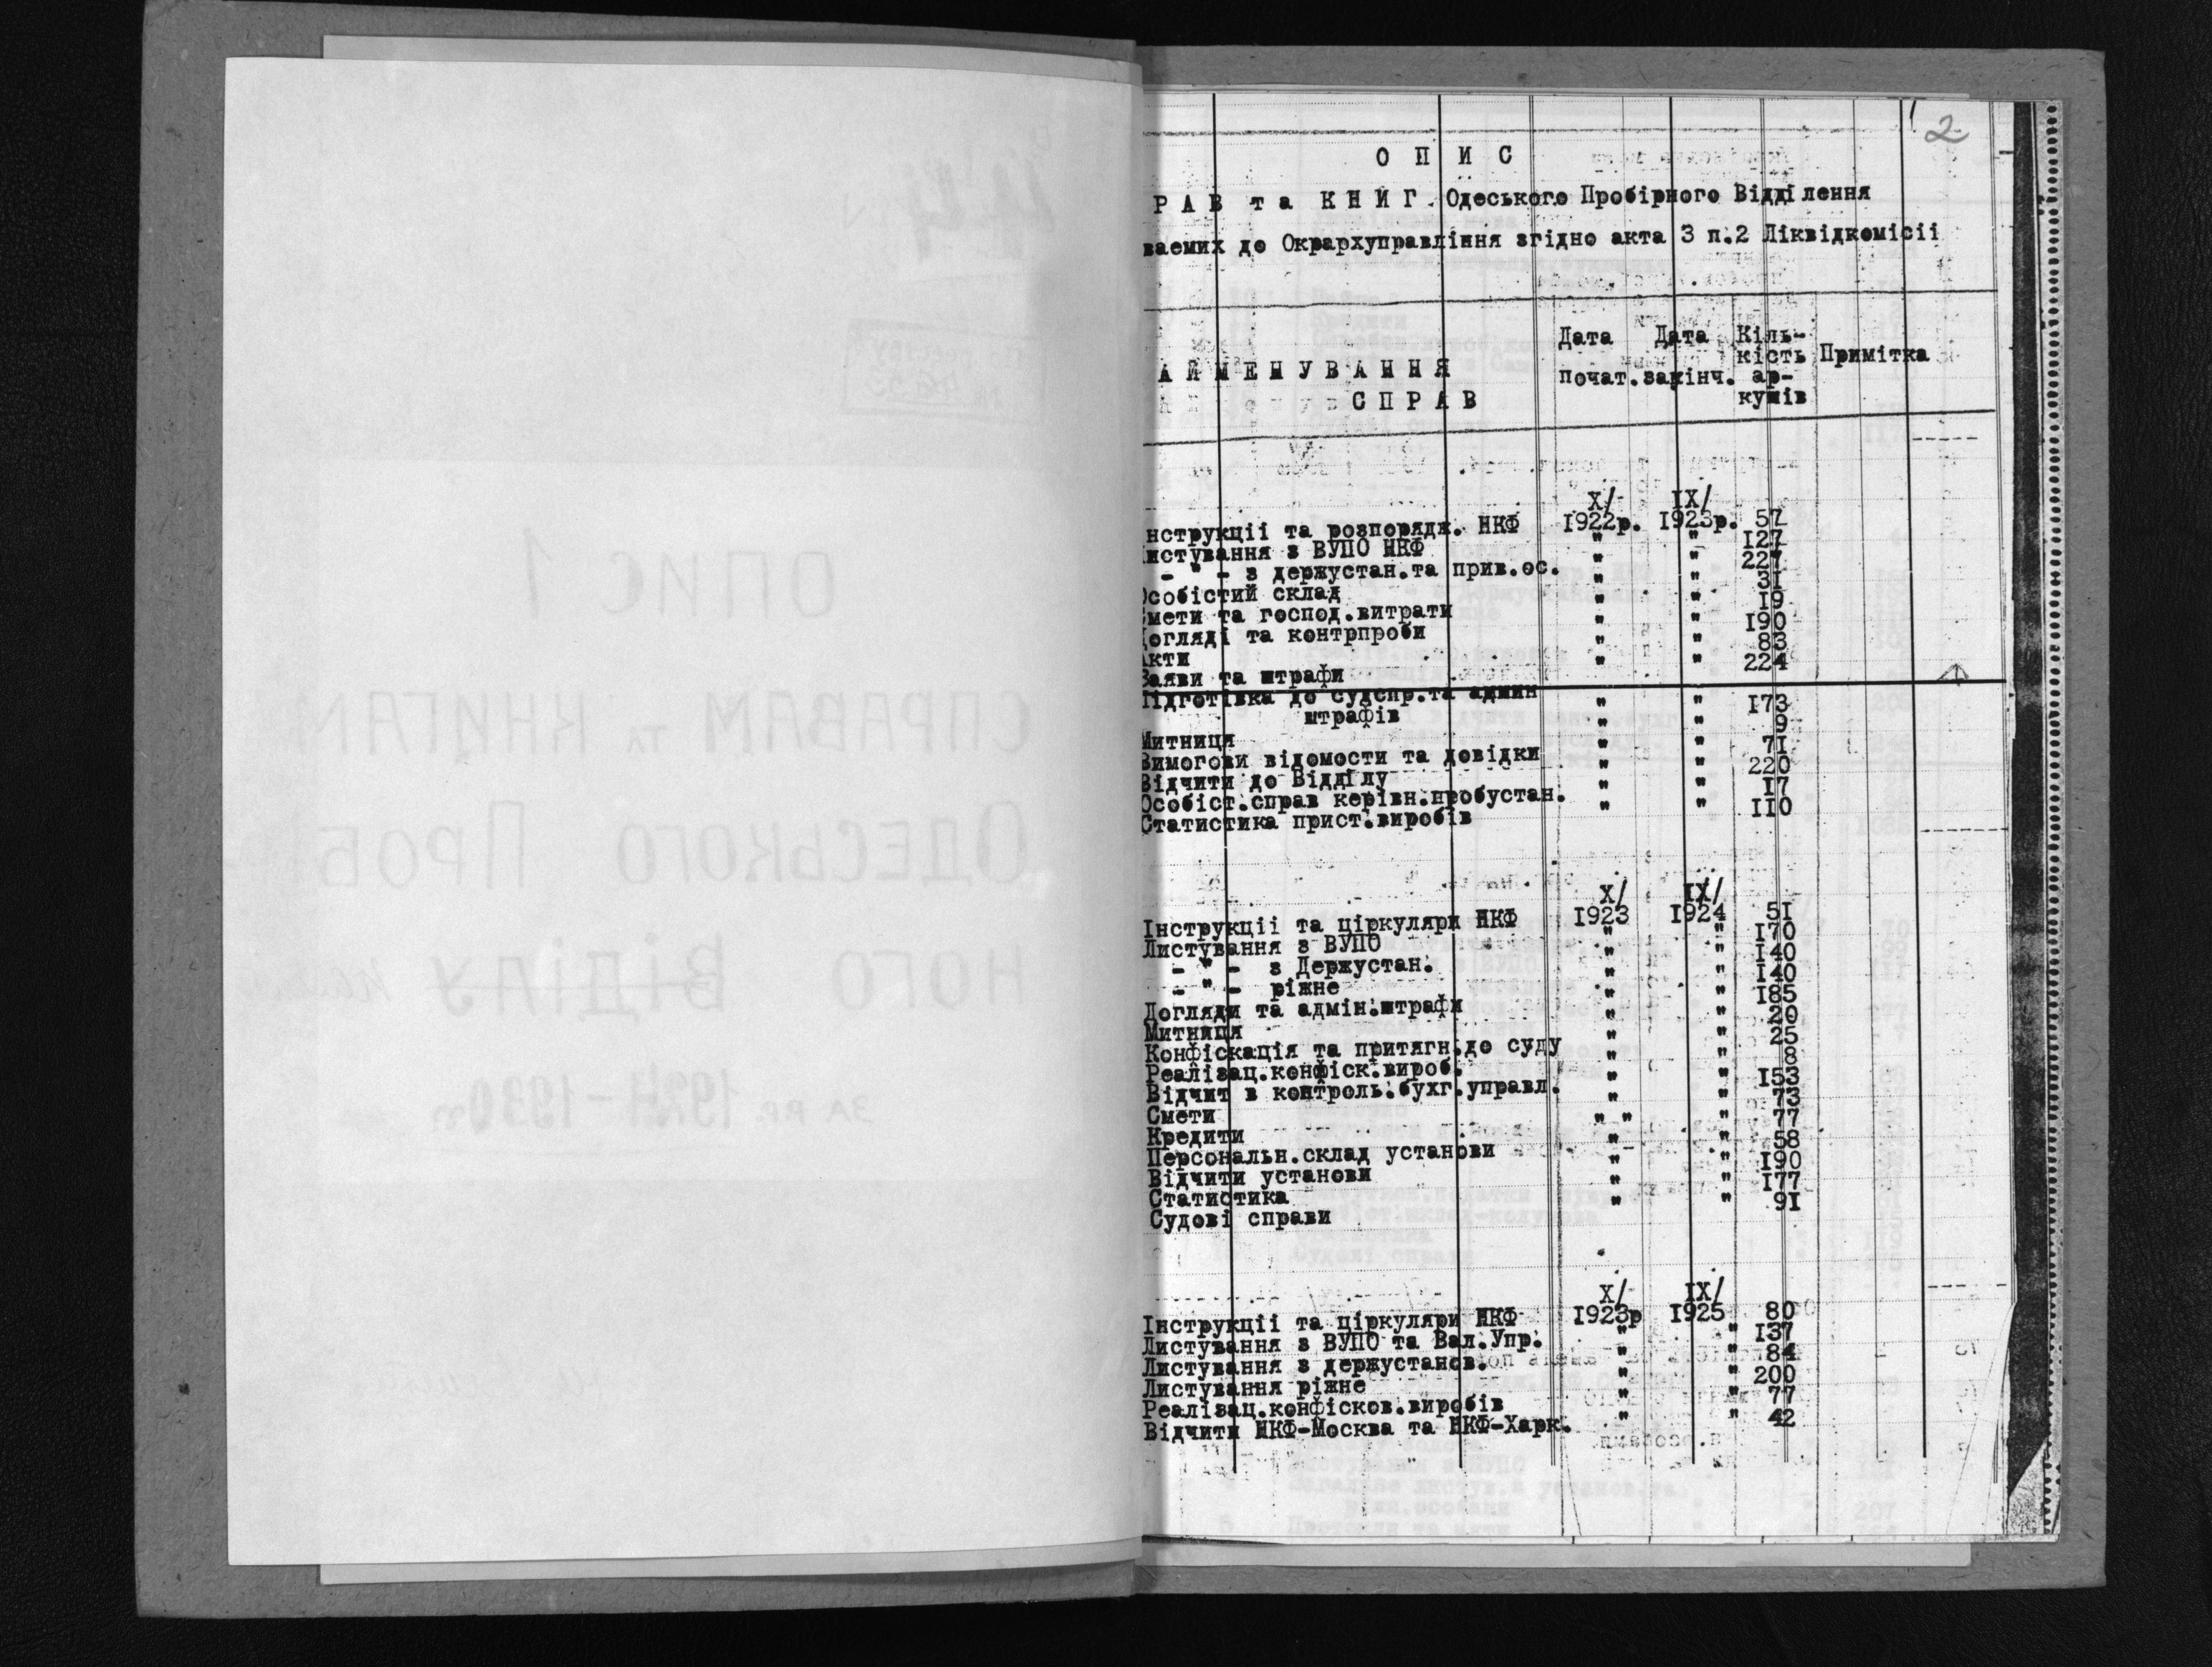 2
О П И С
РАВ та КНИГ. Одеського Пробірного Відділення
ваемих до Окрархуправління згідно акта 3 п.2 Ліквідкомісіі
АЙМЕНУВАННЯ СПРАВ Дата почат. Дата закінч. Кіль-кість ар-кушів Примітка
X/ IX/
нструкціі та розпорядж. НКФ I922р. I923р. 57
истування з ВУПО НКФ " " I27
- " - з держустан.та прив.ос. " " 227
Особістий склад " " 3I
Смети та господ.витрати " " I9
Догляді та контрпроби " " I90
Акти " " 83
Заяви та штрафи " " 224
Підготівка до судспр.та админ
штрафів " " I73
Митниця " " 9
Вимогови відомости та довідки " " 7I
Відчити до Відділу " " 220
Особіст.справ керівн.пробустан. " " I7
Статистика прист.виробів " " II0
X/ IX/
Інструкціі та ціркуляри НКФ I923 I924 5I
Листування з ВУПО " " I70
- " - з Держустан. " " I40
- " - ріжне " " I40
Догляди та адмін.штрафи " " I85
Митниця " " 20
Конфіскація та притягн.до суду " " 25
Реалізац.конфіск.вироб. " " 8
Відчит в контроль.бухг.управл. " " I53
Смети " " 73
Кредити " " " 77
Персональн.склад установи " " 58
Відчити установи " " I90
Статистика " " I77
Судові справи " " 9I
X/ IX/
Інструкціі та ціркуляри НКФ I923р I925 80
Листування з ВУПО та Вал.Упр. " " I37
Листування з держустанов. " " 84
Листування ріжне " " 200
Реалізац.конфісков.виробів " " 77
Відчити НКФ-Москва та НКФ-Харк. " " 42